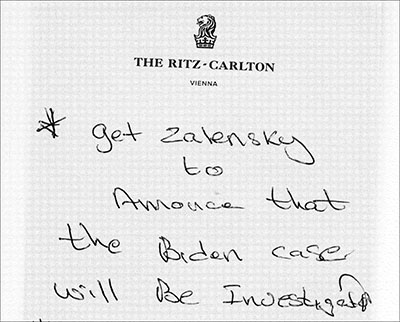 THE RITZ-CARLTON
VIENNA
* get Zalensky
to
Annouce that
the Biden case
will Be Investigated